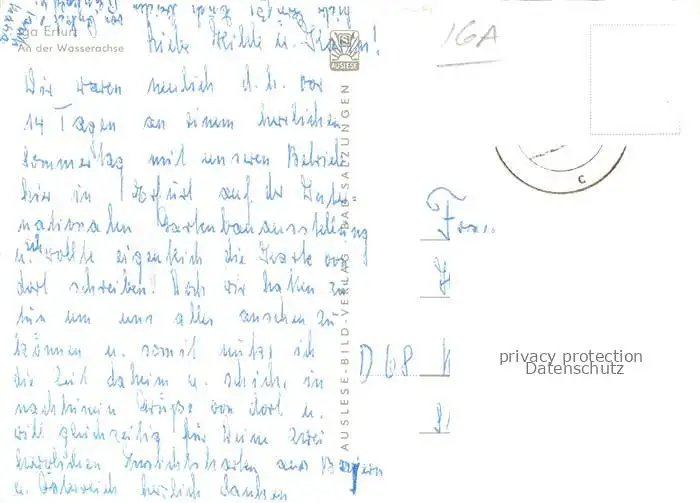 iga Erfurt
An der Wasserachse
AUSLESE
AUSLESE-BILD-VERLAG · BAD SALZUNGEN
16A
C
Liebe
Wir waren neulich d.h. vor
14 Tagen an einem herrlichen
Sommertag mit unseren Betrieb
hier in Erfurt auf der Inter-
nationalen Gartenbauausstellung
u. ich wollte eigentlich die Karte von
dort schreiben! Doch wir hatten zu
tun um uns alles ansehen zu
können u. somit nutze ich
die Zeit daheim u. schicke
Grüße von dort u.
will gleichzeitig für Deine zwei
herrlichen Ansichtskarten aus Bayern
u. Österreich herzlich danken
Frau
D 68
privacy protection
Datenschutz